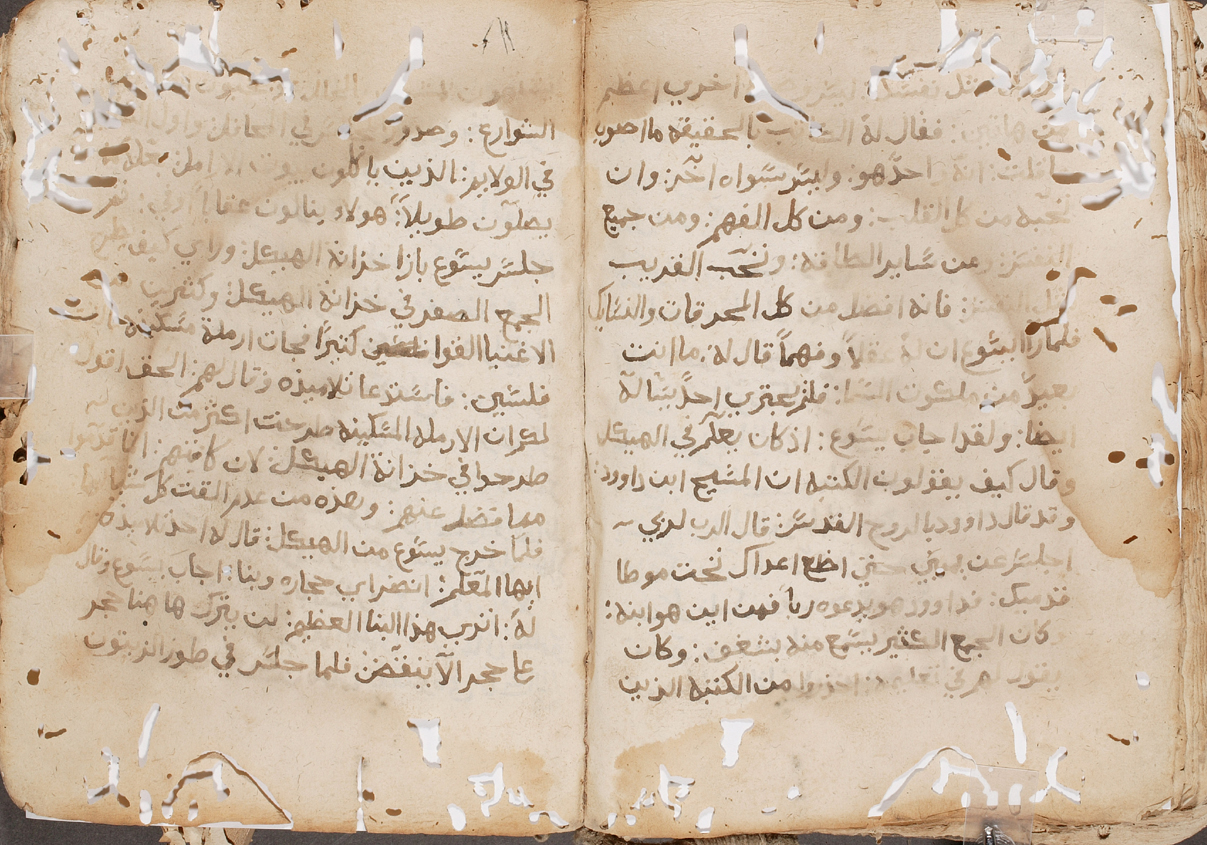 مثل نفسك اخري اعظم
من هاتين: فقال له الكاتب بالحقيقة ما اصوب
ما قلت: انه واحد هو: وليس سواه اخر: وان
تحبه من كل القلب: ومن كل الفهم: ومن جميع
النفس: ومن ساير الطاقة: وتحب القريب
مثل النفس: فانه افضل من كل المحرقات والدبايح
فلما راا يسوع ان له عقلاً وفهماً قال له: ما انت
بعيد من ملكوت السما: فلم يجتري احدٌ يسَاله
ايضا: ولقد اجاب يسوع: اذ كان يعلم في الهيكل
وقال كيف يقولون الكتبه ان المسيح ابن داوود:
وقد قال داوود بالروح القدس: قال الرب لربي
اجلس عن يميني حتي اضع اعداك تحت موطا
قدميك: فداوود هو يدعوه رباً فمن اين هو ابنه:
وكان الجمع الكثير يسمع منه بشغف: وكان
يقول لهم في تعليمه: احذروا من الكتبه الذين
الشوارع: وصدور المجالس في المحافل: واول
في الولايم: الذين ياكلون بيوت الارامل بعلة
يصلون طويلاً: هولاء ينالون عقاباً اوفي: ثم
جلس يسوع بازا خزانة الهيكل: وراي كيف يطرح
الجمع الصفر في خزانة الهيكل: وكثيرين
الاغنيا القوا كثيراً فجات ارملة مسكينة القت
فلسين: فاستدعا تلاميذه وقال لهم: الحق اقول
لكم ان الارملة المسكينة طرحت اكثر من الذين
طرحوا في خزانة الهيكل: لان كافتهم: انما قدموا
مما فضل عنهم: وهذه من عدم القت كل شيا لها
فلما خرج يسوع من الهيكل: قال له احد تلاميذه
ايها المعلم: انضر اي حجاره وبنا: اجاب يسوع وقال
له: اتري هذا البنا العظيم: لن يترك هاهنا حجر
عا حجر الا ينقض: فلما جلس في طور الزيتون